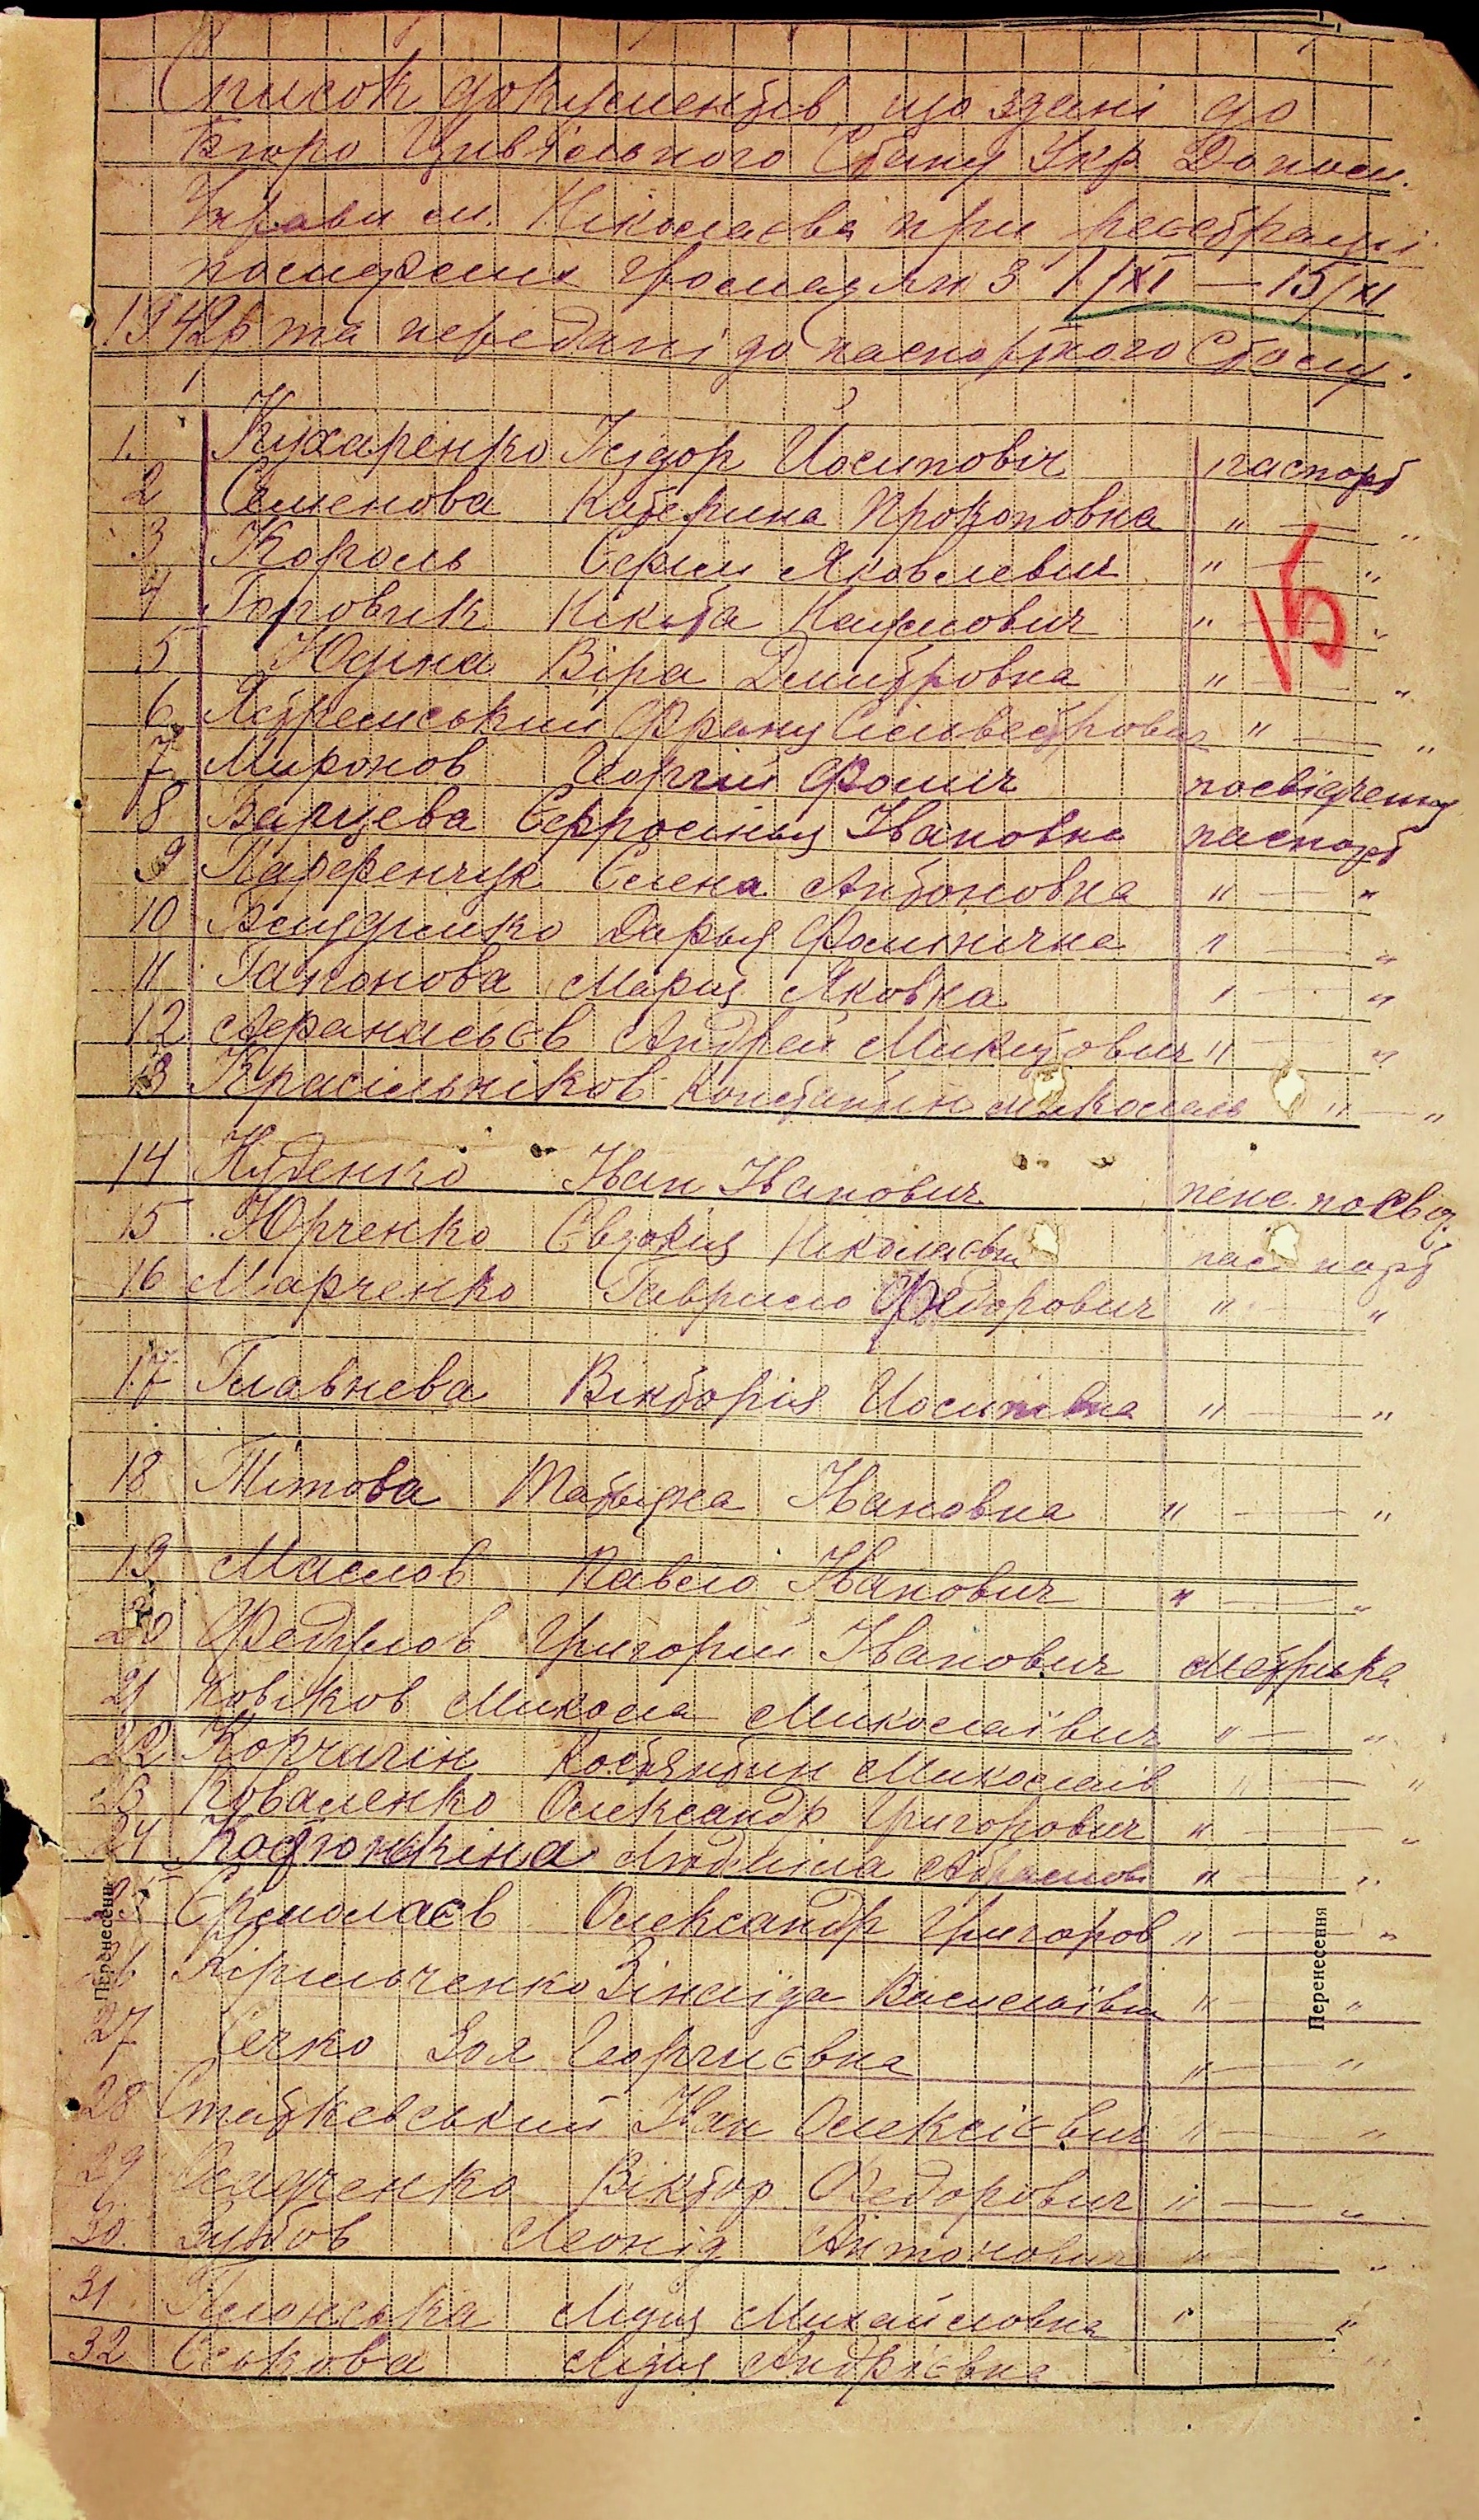 Список документів, що здані до
Бюро Цивільного Стану Укр. Допом.
Управи м. Ніколаєва при реєстрації
померших громадян з 1/XI — 15/XI
1942р та передані до паспортного столу.
1. Кухаренко Ісідор Йосиповіч паспорт
2 Семенова Катерина Прокоповна " — "
3 Король Сергій Яковлевич " — "
4 Боровик Нікіта Наумович " — "
15
5 Юдина Віра Дмитровна " — "
6 Ястремський Франц Сільвестрович " — "
7 Миронов Георгій Фоміч посвідчення
8 Барцева Єфросинія Івановна паспорт
9 Парфенчук Єлена Антоновна " — "
10 Дарья Фомінична " — "
11 Гапонова Мария Яковна " — "
12 Афанасьєв Андрей Микитович " — "
13 Красільніков Константин Миколаев " — "
14 Куденко Іван Іванович пенс. посвід.
15 Юрченко Євдокия Ніколаєвн паспорт
16 Марченко Гаврило Федорович " "
17 Главнева Вікторія Йосипівна " — "
18 Тітова Татьяна Івановна " — "
19 Маслов Павло Іванович " — "
20 Федулов Григорій Іванович метрика
21 Новіков Микола Миколаївич " — "
22 Корчагін Костянтин Миколаїв " — "
23 Коваленко Олександр Григорович " — "
24 Людміла Абрамов " — "
25 Єрмолаєв Олександр Григоров " — "
26 Кірильченко Зінаїда Васильївн " — "
27 Сечко Зоя Георгиєвна " — "
28 Статкевський Іван Олексієвич " — "
29 Віктор Федорович " — "
30. Зубов Леонід Антонович " — "
31 Плонська Лідия Михайловна " "
32 Єськова Лідия Андрієвна "
Перенесення
Перенесення